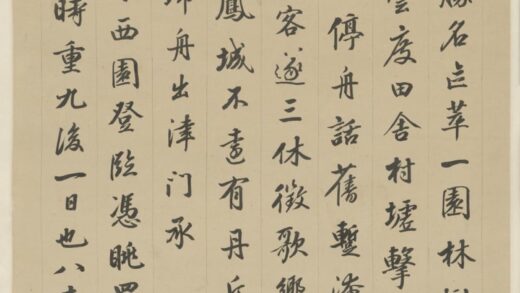 名萃一園林
度田舍村墟擊
停舟話舊暫淹
客遂三休徵歌
鳳城不遠有丹丘
舟出津门承
西園登臨憑眺
時重九後一日也八